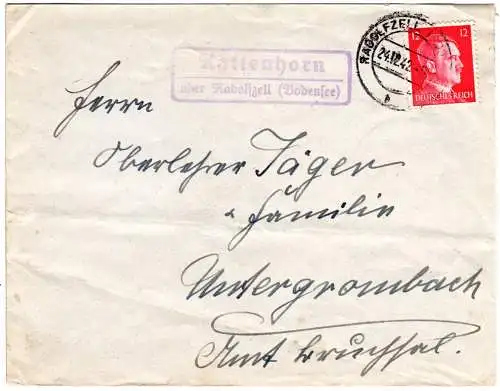 Kattenhorn
über Radolfzell (Bodensee)
RADOLFZELL
24.12.42
b
12 12
DEUTSCHES REICH
Herrn
Oberlehrer Jäger
u. Familie
Untergrombach
Amt Bruchsal.